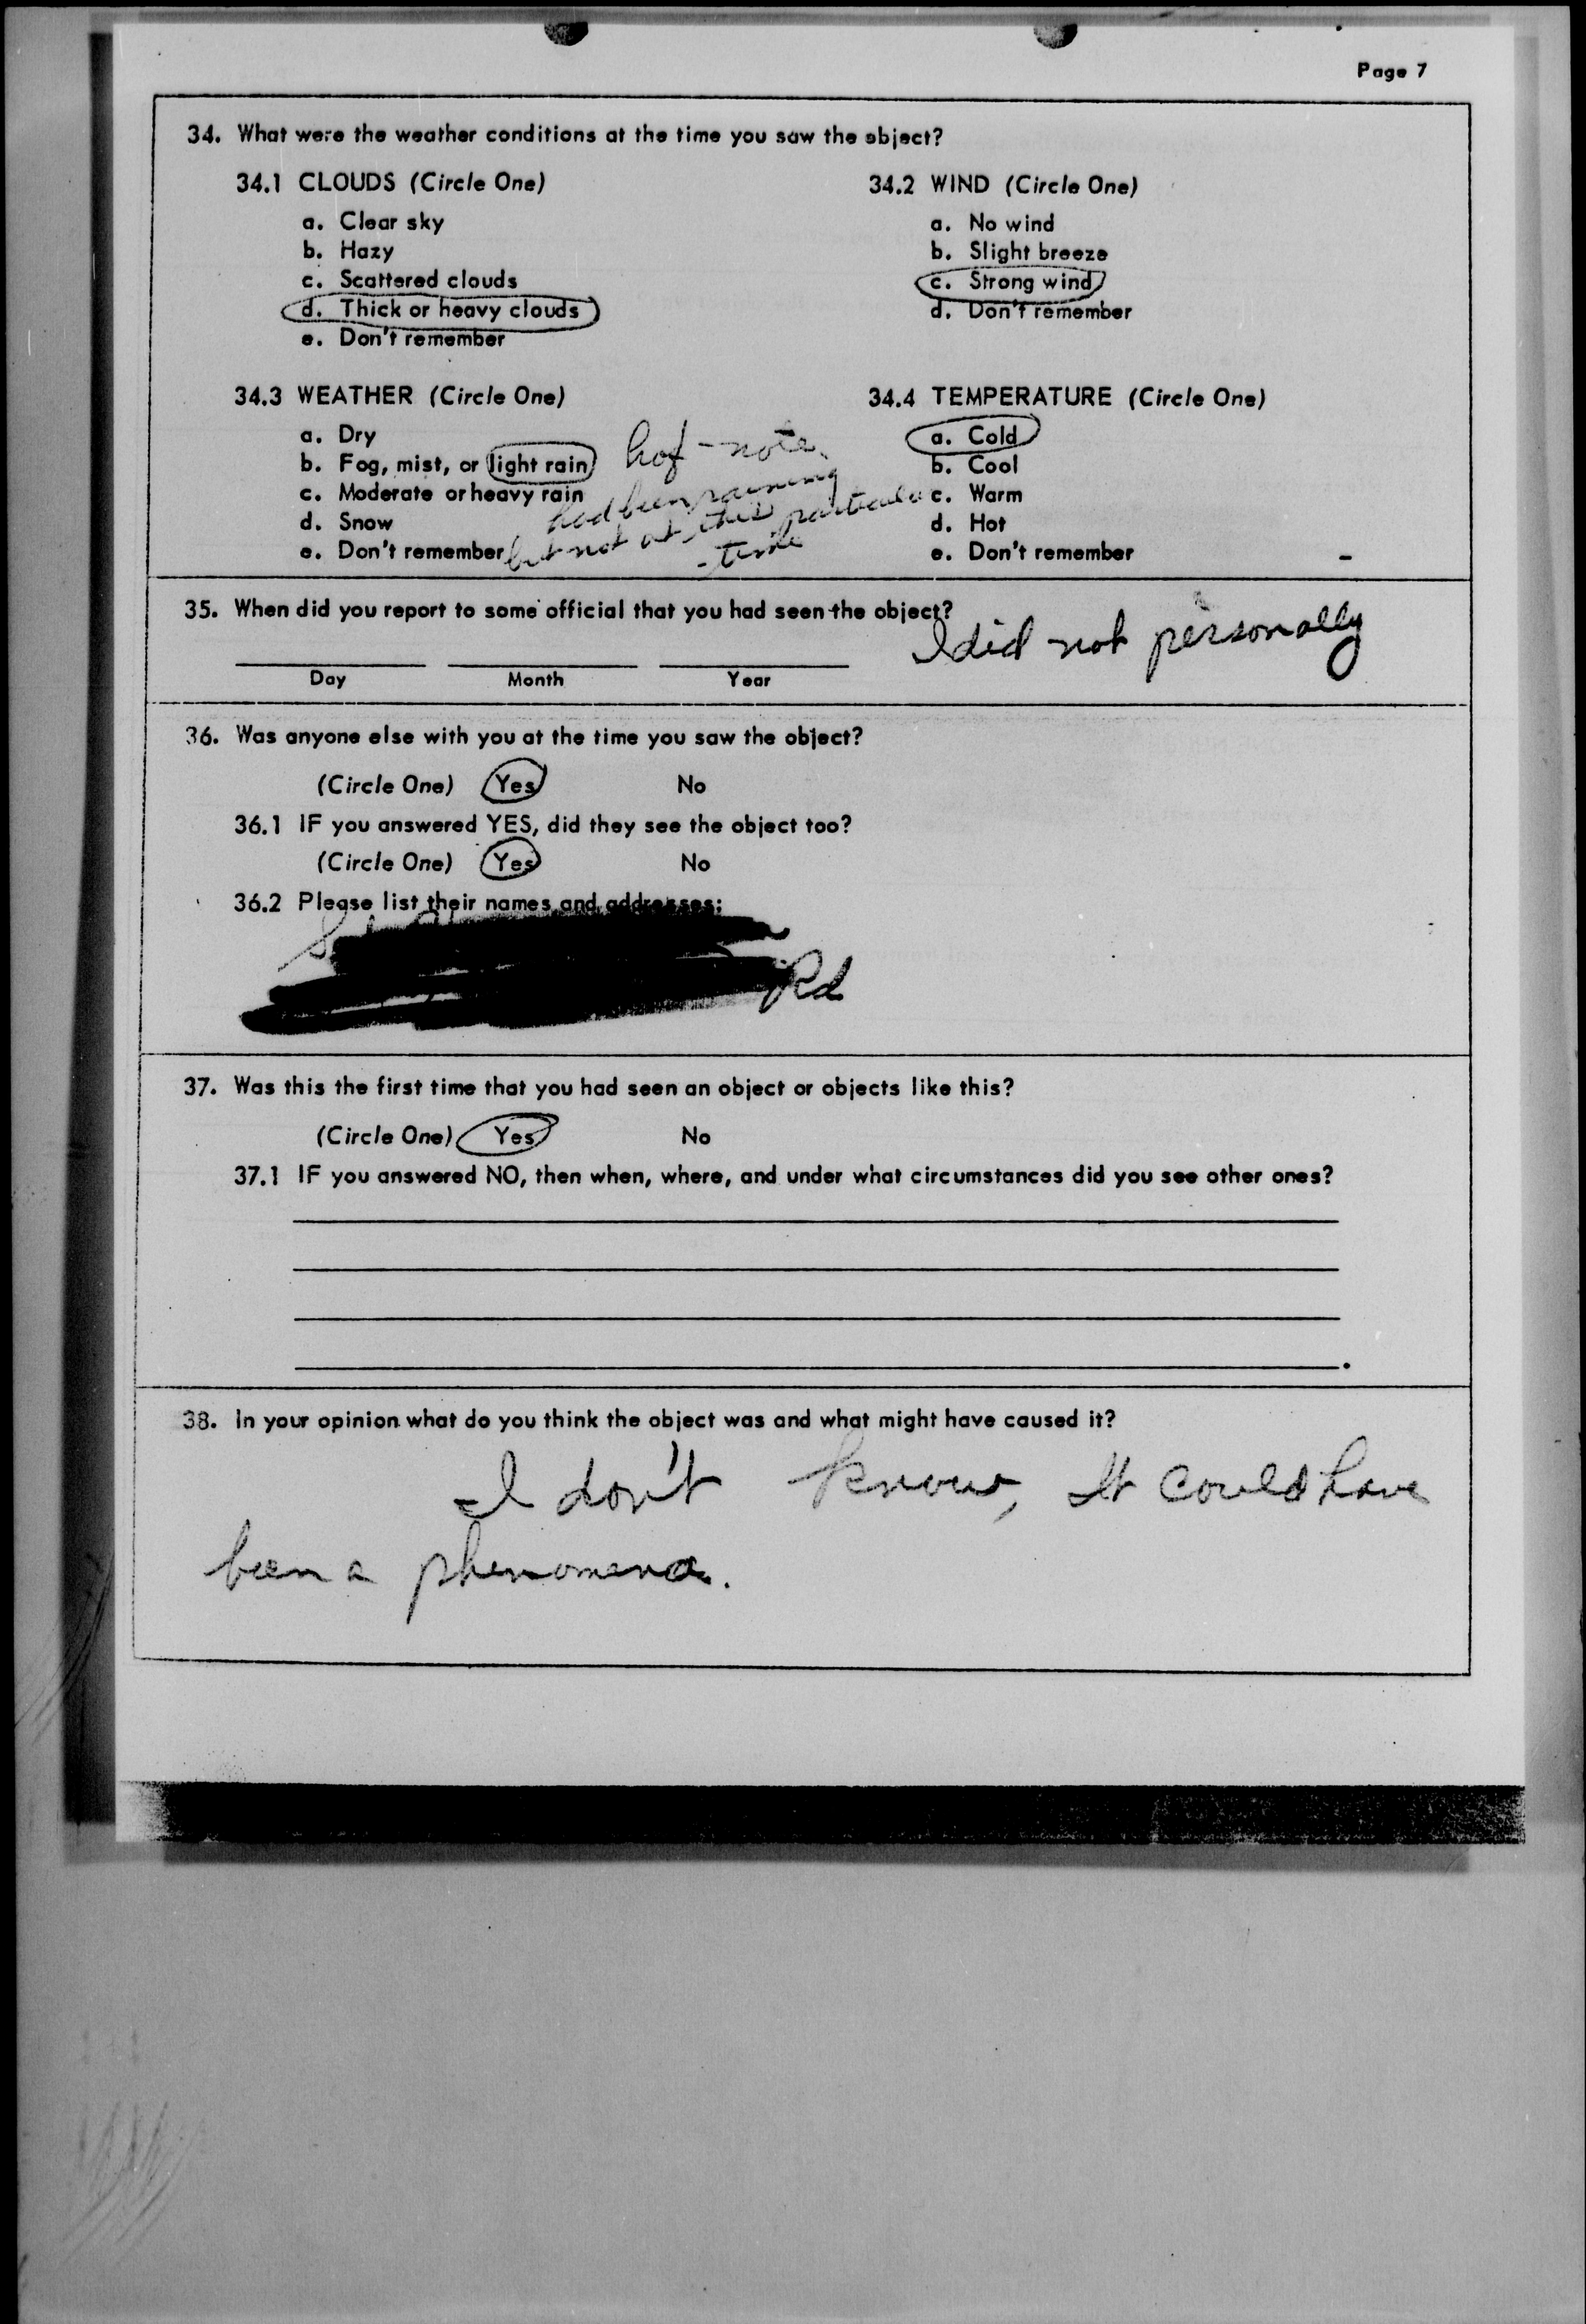 Page 7
34. What were the weather conditions at the time you saw the object?
34.1 CLOUDS (Circle One)
a. Clear sky
b. Hazy
c. Scattered clouds
d. Thick or heavy clouds
e. Don't remember
34.2 WIND (Circle One)
a. No wind
b. Slight breeze
c. Strong wind
d. Don't remember
34.3 WEATHER (Circle One)
a. Dry
b. Fog, mist, or light rain
c. Moderate or heavy rain
d. Snow
e. Don't remember
note
had been raining
but not at this particular
time
34.4 TEMPERATURE (Circle One)
a. Cold
b. Cool
c. Warm
d. Hot
e. Don't remember
35. When did you report to some official that you had seen the object?
I did not personally
Day Month Year
36. Was anyone else with you at the time you saw the object?
(Circle One) Yes No
36.1 IF you answered YES, did they see the object too?
(Circle One) Yes No
36.2 Please list their names and addresses:
Rd
37. Was this the first time that you had seen an object or objects like this?
(Circle One) Yes No
37.1 IF you answered NO, then when, where, and under what circumstances did you see other ones?
38. In your opinion what do you think the object was and what might have caused it?
I don't know, It could have
been a phenomena.